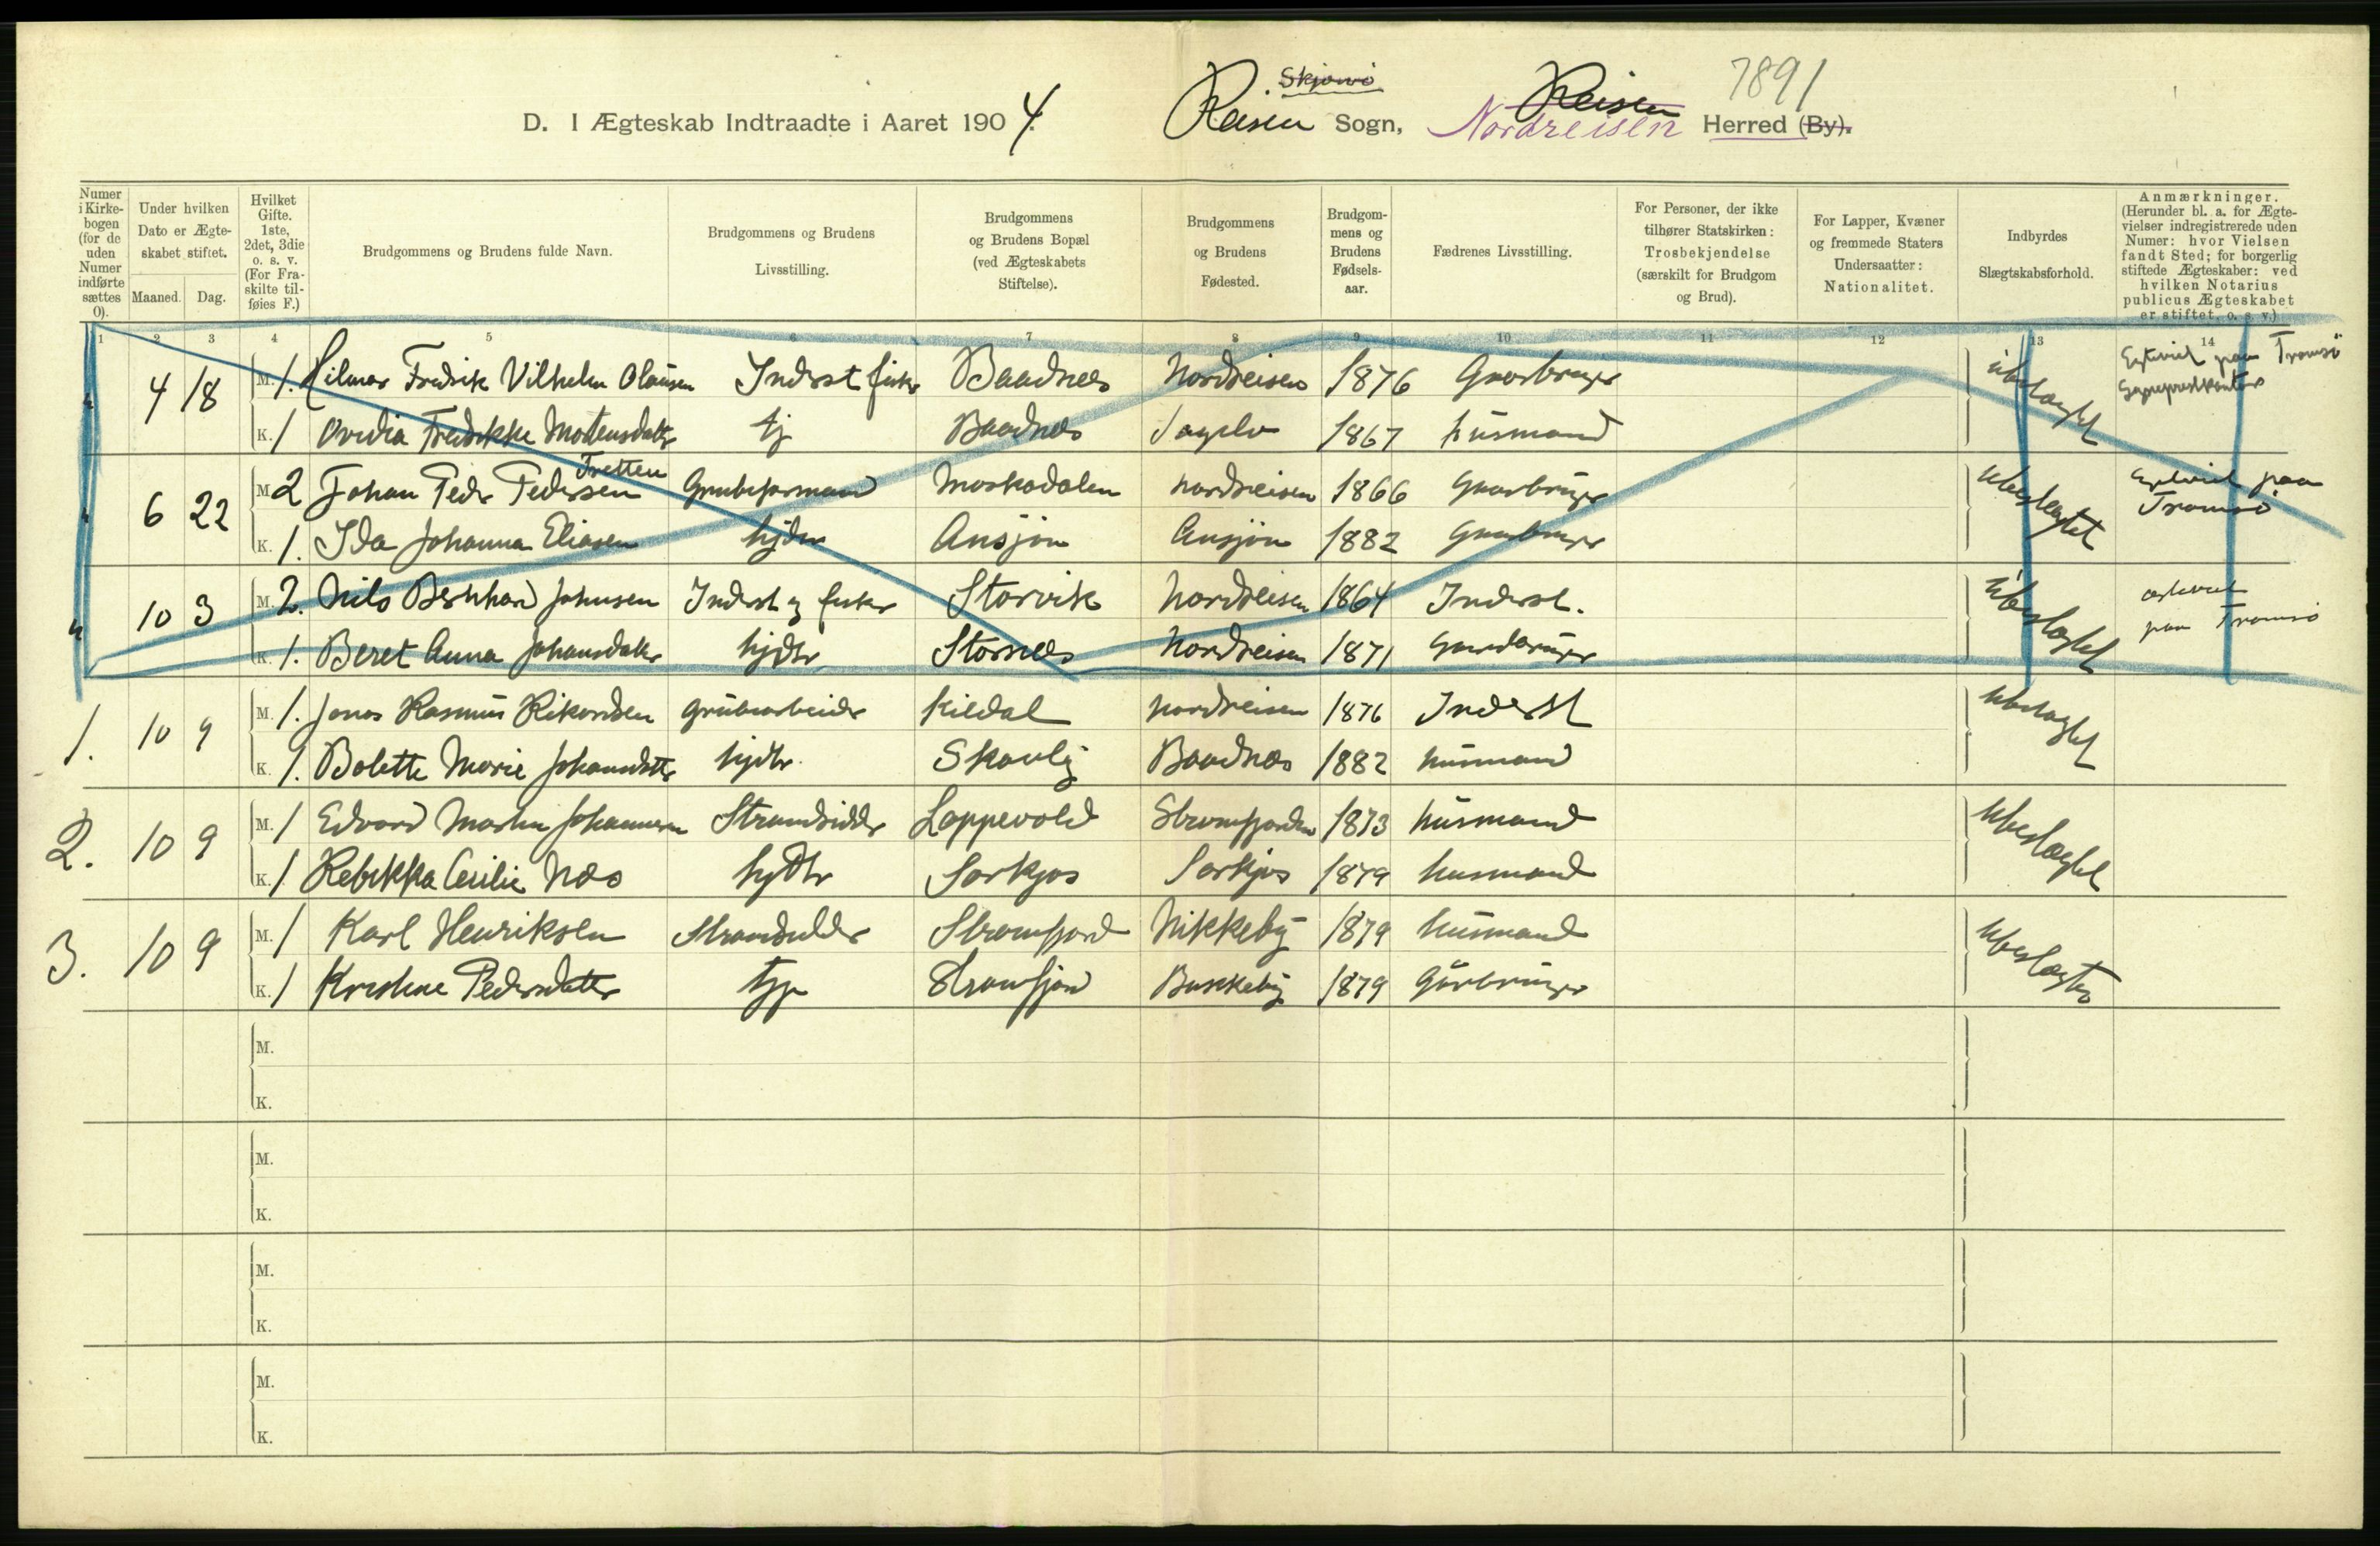 Skjervö 7891
D. I Ægteskab Indtraadte i Aaret 1904. Reisen Sogn, Reisen Nordreisen Herred (By).
Numer i Kirkebogen (for de uden Numer indførte sættes 0).
Under hvilken Dato er Ægteskabet stiftet.
Maaned. Dag.
Hvilket Gifte. 1ste, 2det, 3die o. s. v. (For Fraskilte tilføies F.)
Brudgommens og Brudens fulde Navn.
Brudgommens og Brudens Livsstilling.
Brudgommens og Brudens Bopæl (ved Ægteskabets Stiftelse).
Brudgommens og Brudens Fødested.
Brudgommens og Brudens Fødselsaar.
Fædrenes Livsstilling.
For Personer, der ikke tilhører Statskirken: Trosbekjendelse (særskilt for Brudgom og Brud).
For Lapper, Kvæner og fremmede Staters Undersaatter: Nationalitet.
Indbyrdes Slægtskabsforhold.
Anmærkninger. (Herunder bl. a. for Ægtevielser indregistrerede uden Numer: hvor Vielsen fandt Sted; for borgerlig stiftede Ægteskaber: ved hvilken Notarius publicus Ægteskabet er stiftet, o. s. v.)
1 2 3 4 5 6 7 8 9 10 11 12 13 14
4 18 M. 1. Hilmar Fredrik Vilhelm Olausen Inderst fisker Baadnes Nordreisen 1876 Gaarbruger ubeslægtet Tromsö
K. 1 Ovidia Fredrikke Mortensdatter tj Baadnes 1867 Husmand
6 22 M. 2 Johan Peder Pedersen Fretten Grubeformand Moskodalen Nordreisen 1866 Gaarbruger ubeslægtet paa Tromsö
K. 1. Ida Johanna Eliasen hjdtr Ansjön Ansjön 1882 Gaarbruger
10 3 M. 2. Nils Bernhard Johnsen Inderst og fisker Storvik Nordreisen 1864 Inderst. ubeslægtet paa Tromsö
K. 1. Beret Anna Johansdatter hjdtr Storsnes Nordreisen 1871 Gaardbruger
1. 10 9 M. 1. Jonas Rasmus Rikardsen Grubearbeider Kildal Nordreisen 1876 Inderst ubeslægtet
K. 1. Bolette Marie Johansdatter hjdtr. Skarvly Baadnes 1882 Husmand
2. 10 9 M. 1 Edvard Martin Johannesen Strandsidder Loppevold Straumfjorden 1873 Husmand ubeslægtet
K. 1 Rebekka Cecilie Næs hjdtr Sørkjos Sørkjos 1879 Husmand
3. 10 9 M. 1 Karl Henriksen Strandsidder Straumfjord Nikkeby 1879 Husmand ubeslægtet
K. 1 Kristine Pedersdatter tjp Straumfjord 1879 Gårbruger
M.
K.
M.
K.
M.
K.
M.
K.